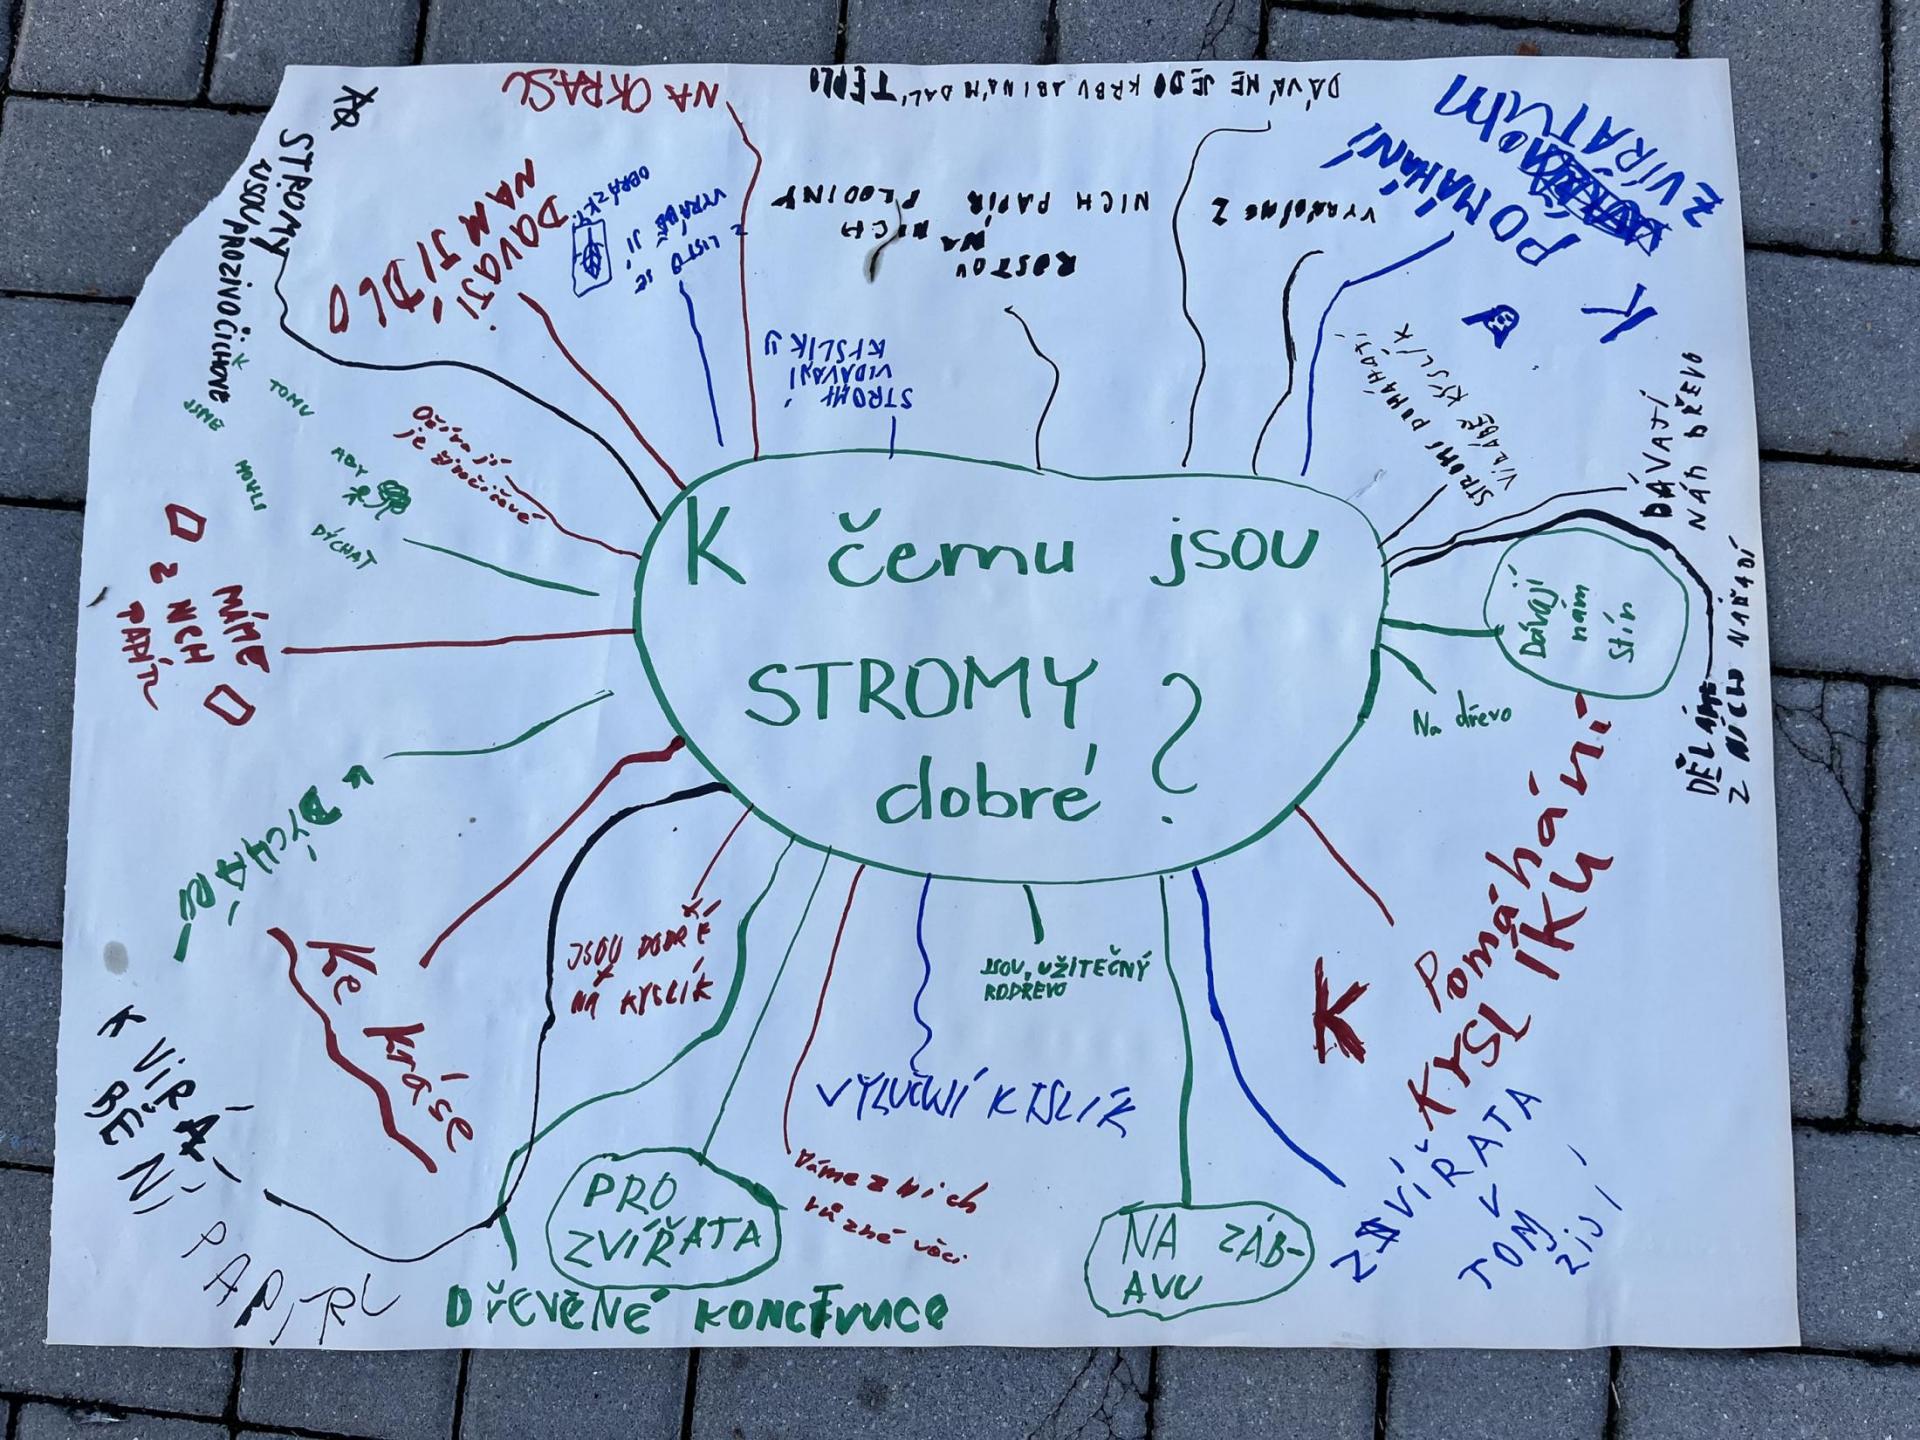 K čemu jsou
STROMY
dobré ?
NA OKRASU
DÁVÁME JE DO KRBU ABI NÁM DALI TEPLO
K POMAHÁNÍ
ZVÍŘATUM
VYRÁBÍME Z
NICH PAPÍR
ROSTOU
NA NICH
PLODINY
STROMY
VIDAVAJÍ
KYSLÍKY
Z LISTŮ SE
VYRÁBĚJÍ
OBRÁZKY
DÁVAJÍ
NÁM JÍDLO
STROMY
JSOU PRO ŽIVOČICHOVÉ
JSME
TOMU
MOHLI
ABY
DÝCHAT
Ožívají
je živočichové
MÁME
Z NICH
PAPÍR
K DÝCHÁNÍ
Ke kráse
K VIRÁ
BĚNÍ
PAPÍRU
JSOU DOBRÉ
NA KYSLÍK
DŘEVĚNÉ KONSTRUCE
PRO
ZVÍŘATA
Dáme z nich
různé věci
VYLUČUJÍ KYSLÍK
JSOU, UŽITEČNÝ
PRO DŘEVO
NA ZÁB-
AVU
ZVÍŘATA
V
TOM
ŽIJÍ
K Pomáhání
KYSLIKU
Na dřevo
Dávají
nám
stín
DĚLÁME
Z NICH NÁŘADÍ
DÁVAJÍ
NÁM DŘEVO
STROMY POMÁHAJÍ
VIRÁBĚT KYSLÍK